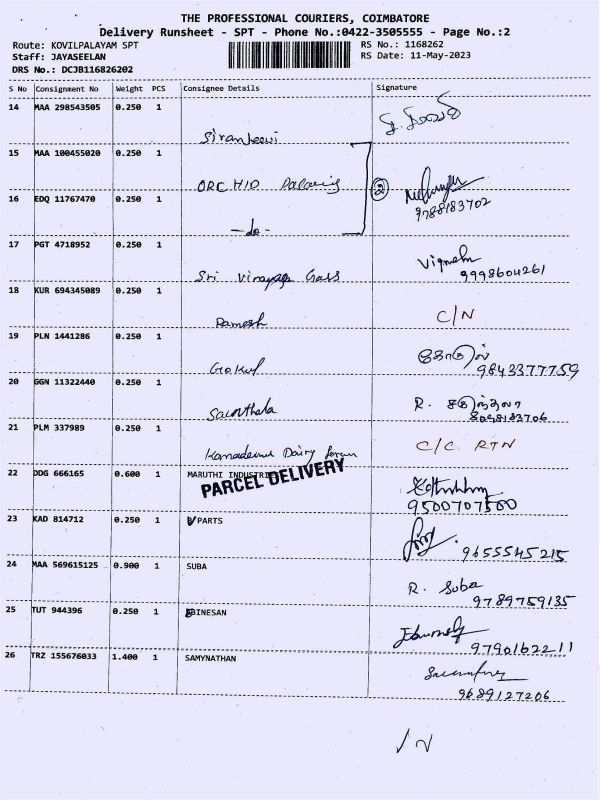 THE PROFESSIONAL COURIERS, COIMBATORE
Delivery Runsheet - SPT - Phone No.:0422-3505555 - Page No.:2
Route: KOVILPALAYAM SPT
RS No.: 1168262
Staff: JAYASEELAN
RS Date: 11-May-2023
DRS No.: DCJB116826202
S No Consignment No Weight PCS Consignee Details Signature
14 MAA 298543505 0.250 1
15 MAA 100455020 0.250 1
ORCHID
16 EDQ 11767470 0.250 1 2
9788183702
-do-
17 PGT 4718952 0.250 1
Sri Vinayaga Gass 9998604261
18 KUR 694345089 0.250 1
Ramesh C/N
19 PLN 1441286 0.250 1
Gokul கோகுல் 9843377759
20 GGN 11322440 0.250 1
R. சகுந்தலா
21 PLM 337989 0.250 1
Kamadeinu Dairy C/C RTN
22 DDG 666165 0.600 1 MARUTHI INDUSTRIES
PARCEL DELIVERY
9500707500
23 KAD 814712 0.250 1 V PARTS
9655545215
24 MAA 569615125 0.900 1 SUBA
R. Suba
9789759135
25 TUT 944396 0.250 1 EBINESAN
9790162211
26 TRZ 155676033 1.400 1 SAMYNATHAN
9689127206